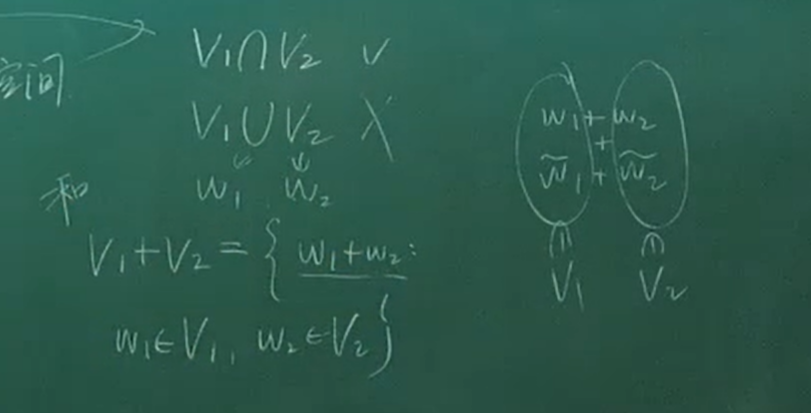 空间
V₁∩V₂ ✓
V₁∪V₂ ✗
w₁ w₂
和
V₁+V₂ = { w₁+w₂ :
w₁∈V₁, w₂∈V₂ }
w₁ + w₂
+
w̃₁ + w̃₂
∩ ∩
V₁ V₂